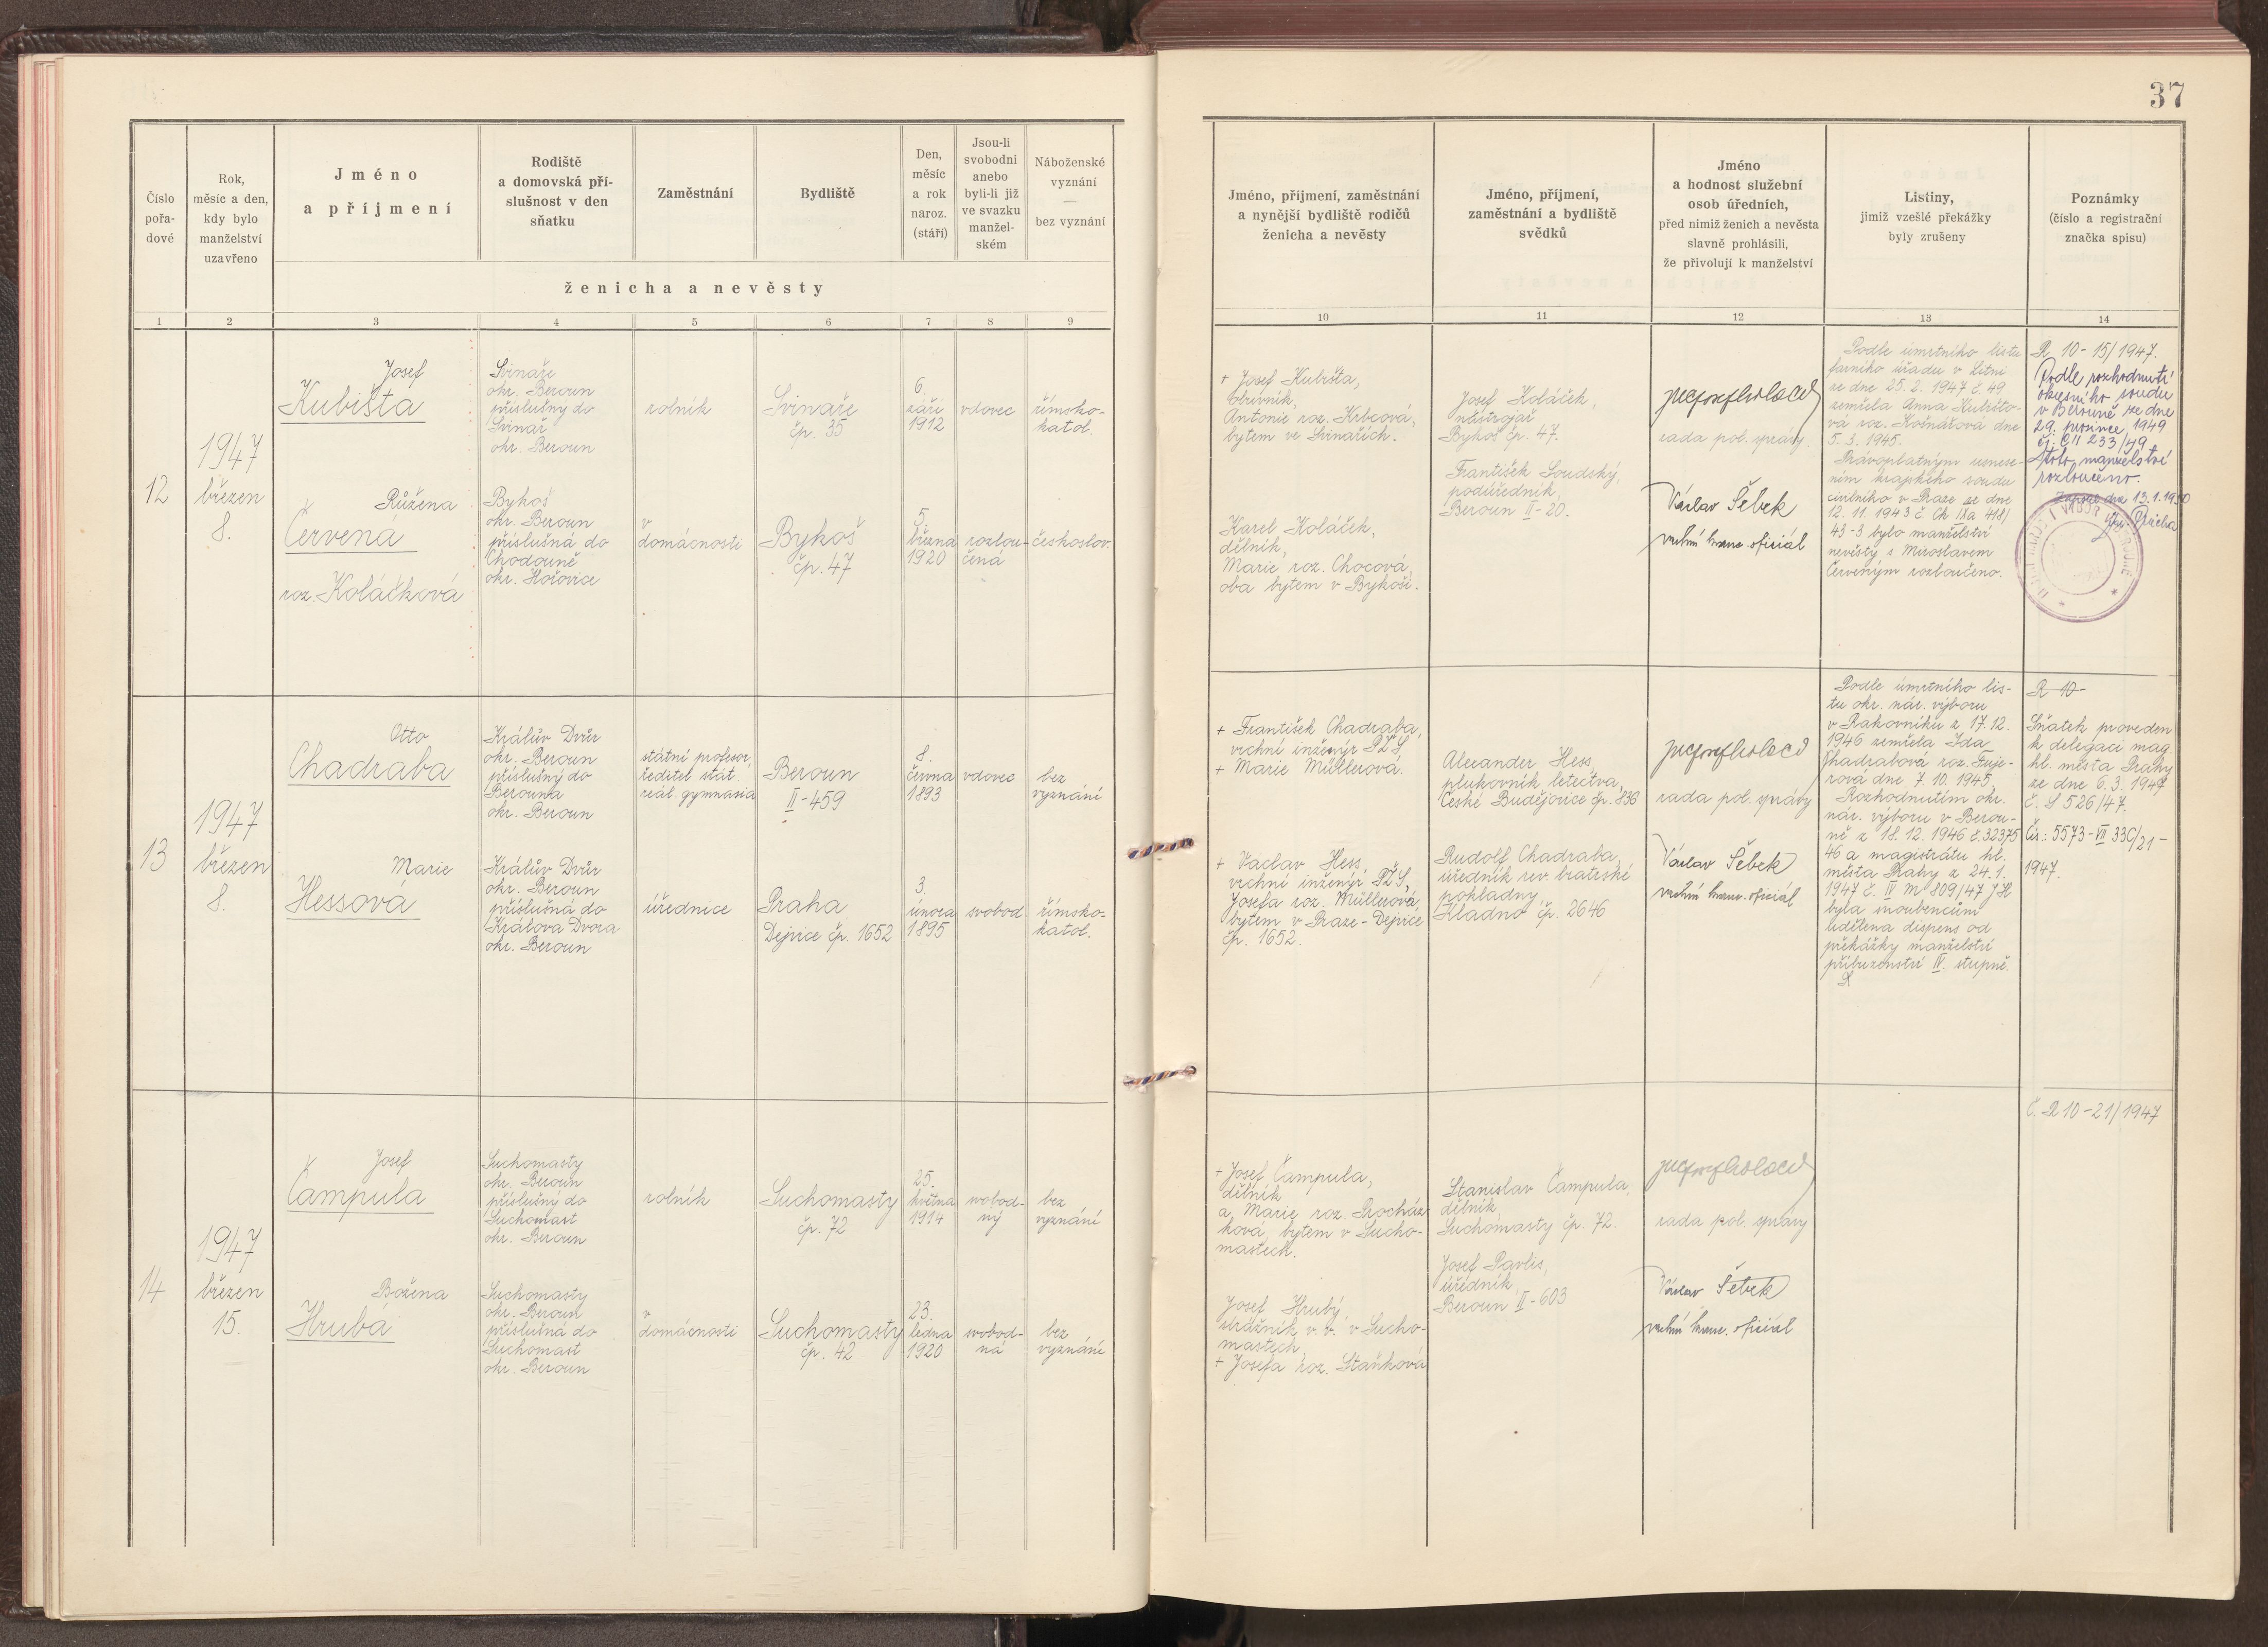 37
Číslo
pořa-
dové
Rok,
měsíc a den,
kdy bylo
manželství
uzavřeno
Jméno
a příjmení
Rodiště
a domovská pří-
slušnost v den
sňatku
Zaměstnání
Bydliště
Den,
měsíc
a rok
naroz.
(stáří)
Jsou-li
svobodni
anebo
byli-li již
ve svazku
manžel-
ském
Náboženské
vyznání
—
bez vyznání
ženicha a nevěsty
Jméno, příjmení, zaměstnání
a nynější bydliště rodičů
ženicha a nevěsty
Jméno, příjmení,
zaměstnání a bydliště
svědků
Jméno
a hodnost služební
osob úředních,
před nimiž ženich a nevěsta
slavně prohlásili,
že přivolují k manželství
Listiny,
jimiž vzešlé překážky
byly zrušeny
Poznámky
(číslo a registrační
značka spisu)
1 2 3 4 5 6 7 8 9 10 11 12 13 14
12
1947
březen
8.
Josef
Kubišta
Svinaře
okr. Beroun
příslušný do
Svinař
okr. Beroun
rolník
Svinaře
čp. 35
6.
září
1912
vdovec
římsko-
katol.
Růžena
Červená
roz. Koláčková
Bykoš
okr. Beroun
příslušná do
Chodouně
okr. Hořovice
v
domácnosti
Bykoš
čp. 47
5.
března
1920
rozlou-
čená
českoslov.
+ Josef Kubišta,
obuvník,
Antonie roz. Krbcová,
bytem ve Svinařích.
Karel Koláček,
dělník,
Marie roz. Chocová,
oba bytem v Bykoši.
Josef Koláček,
nástrojař
Bykoš čp. 47.
František Soudský,
podúředník,
Beroun II-20.
rada pol. správy
Václav Šebek
vrchní kanc. oficiál
Podle úmrtního listu
farního úřadu v Litni
ze dne 25. 2. 1947 č. 49
zemřela Anna Kubišto-
vá roz. dne
5. 3. 1945.
Právoplatným usnese-
ním krajského soudu
civilního v Praze ze dne
12. 11. 1943 č. Ck IXa 418/
43-3 bylo manželství
nevěsty s Miroslavem
Červeným rozloučeno.
R 10-15/1947.
Podle rozhodnutí
okresního soudu
v Berouně ze dne
29. prosince 1949
čj: CII 233/49
toto manželství
rozloučeno.
Zapsal dne 13.1.1950
13
1947
březen
8.
Otto
Chadraba
Králův Dvůr
okr. Beroun
příslušný do
Berouna
okr. Beroun
státní profesor,
ředitel stát.
reál. gymnasia
Beroun
II-459
8.
června
1893
vdovec
bez
vyznání
Marie
Hessová
Králův Dvůr
okr. Beroun
příslušná do
Králova Dvora
okr. Beroun
úřednice
Praha
Dejvice čp. 1652
3.
února
1895
svobod.
římsko-
katol.
+ František Chadraba,
vrchní inženýr PŽS,
+ Marie Müllerová.
+ Václav Hess,
vrchní inženýr PŽS,
Josefa roz. Müllerová,
bytem v Praze-Dejvice
čp. 1652.
Alexander Hess,
plukovník letectva,
České Budějovice čp. 836
Rudolf Chadraba,
úředník rev. bratrské
pokladny,
Kladno čp. 2646
rada pol. správy
Václav Šebek
vrchní kanc. oficiál
Podle úmrtního lis-
tu okr. nár. výboru
v Rakovníku z 17.12.
1946 zemřela Ida
Chadrabová roz. Fuje-
rová dne 7. 10. 1945,
Rozhodnutím okr.
nár. výboru v Berou-
ně z 18. 12. 1946 č. 32375
46 a magistrátu hl.
města Prahy z 24. 1.
1947 č. IV M 809/47 JH
byla snoubencům
udělena dispens od
překážky manželství
příbuzenství IV. stupně.
R 10-
Sňatek proveden
k delegaci mag.
hl. města Prahy
ze dne 6. 3. 1947
č. S 526/47.
Čís.: 5573-VII 33C/21-
1947.
14
1947
březen
15.
Josef
Čampula
Suchomasty
okr. Beroun
příslušný do
Suchomast
okr. Beroun
rolník
Suchomasty
čp. 72
25.
května
1914
svobod-
ný
bez
vyznání
Božena
Hrubá
Suchomasty
okr. Beroun
příslušná do
Suchomast
okr. Beroun
v
domácnosti
Suchomasty
čp. 42
23.
ledna
1920
svobod-
ná
bez
vyznání
+ Josef Čampula,
dělník
a Marie roz. Procház-
ková, bytem v Sucho-
mastech.
Josef Hrubý,
strážník v. v. v Sucho-
mastech,
+ Josefa roz. Staňková
Stanislav Čampula,
dělník,
Suchomasty čp. 72.
Josef Pavlis,
úředník,
Beroun II-603
rada pol. správy
Václav Šebek
vrchní kanc. oficiál
Č. R 10-21/1947